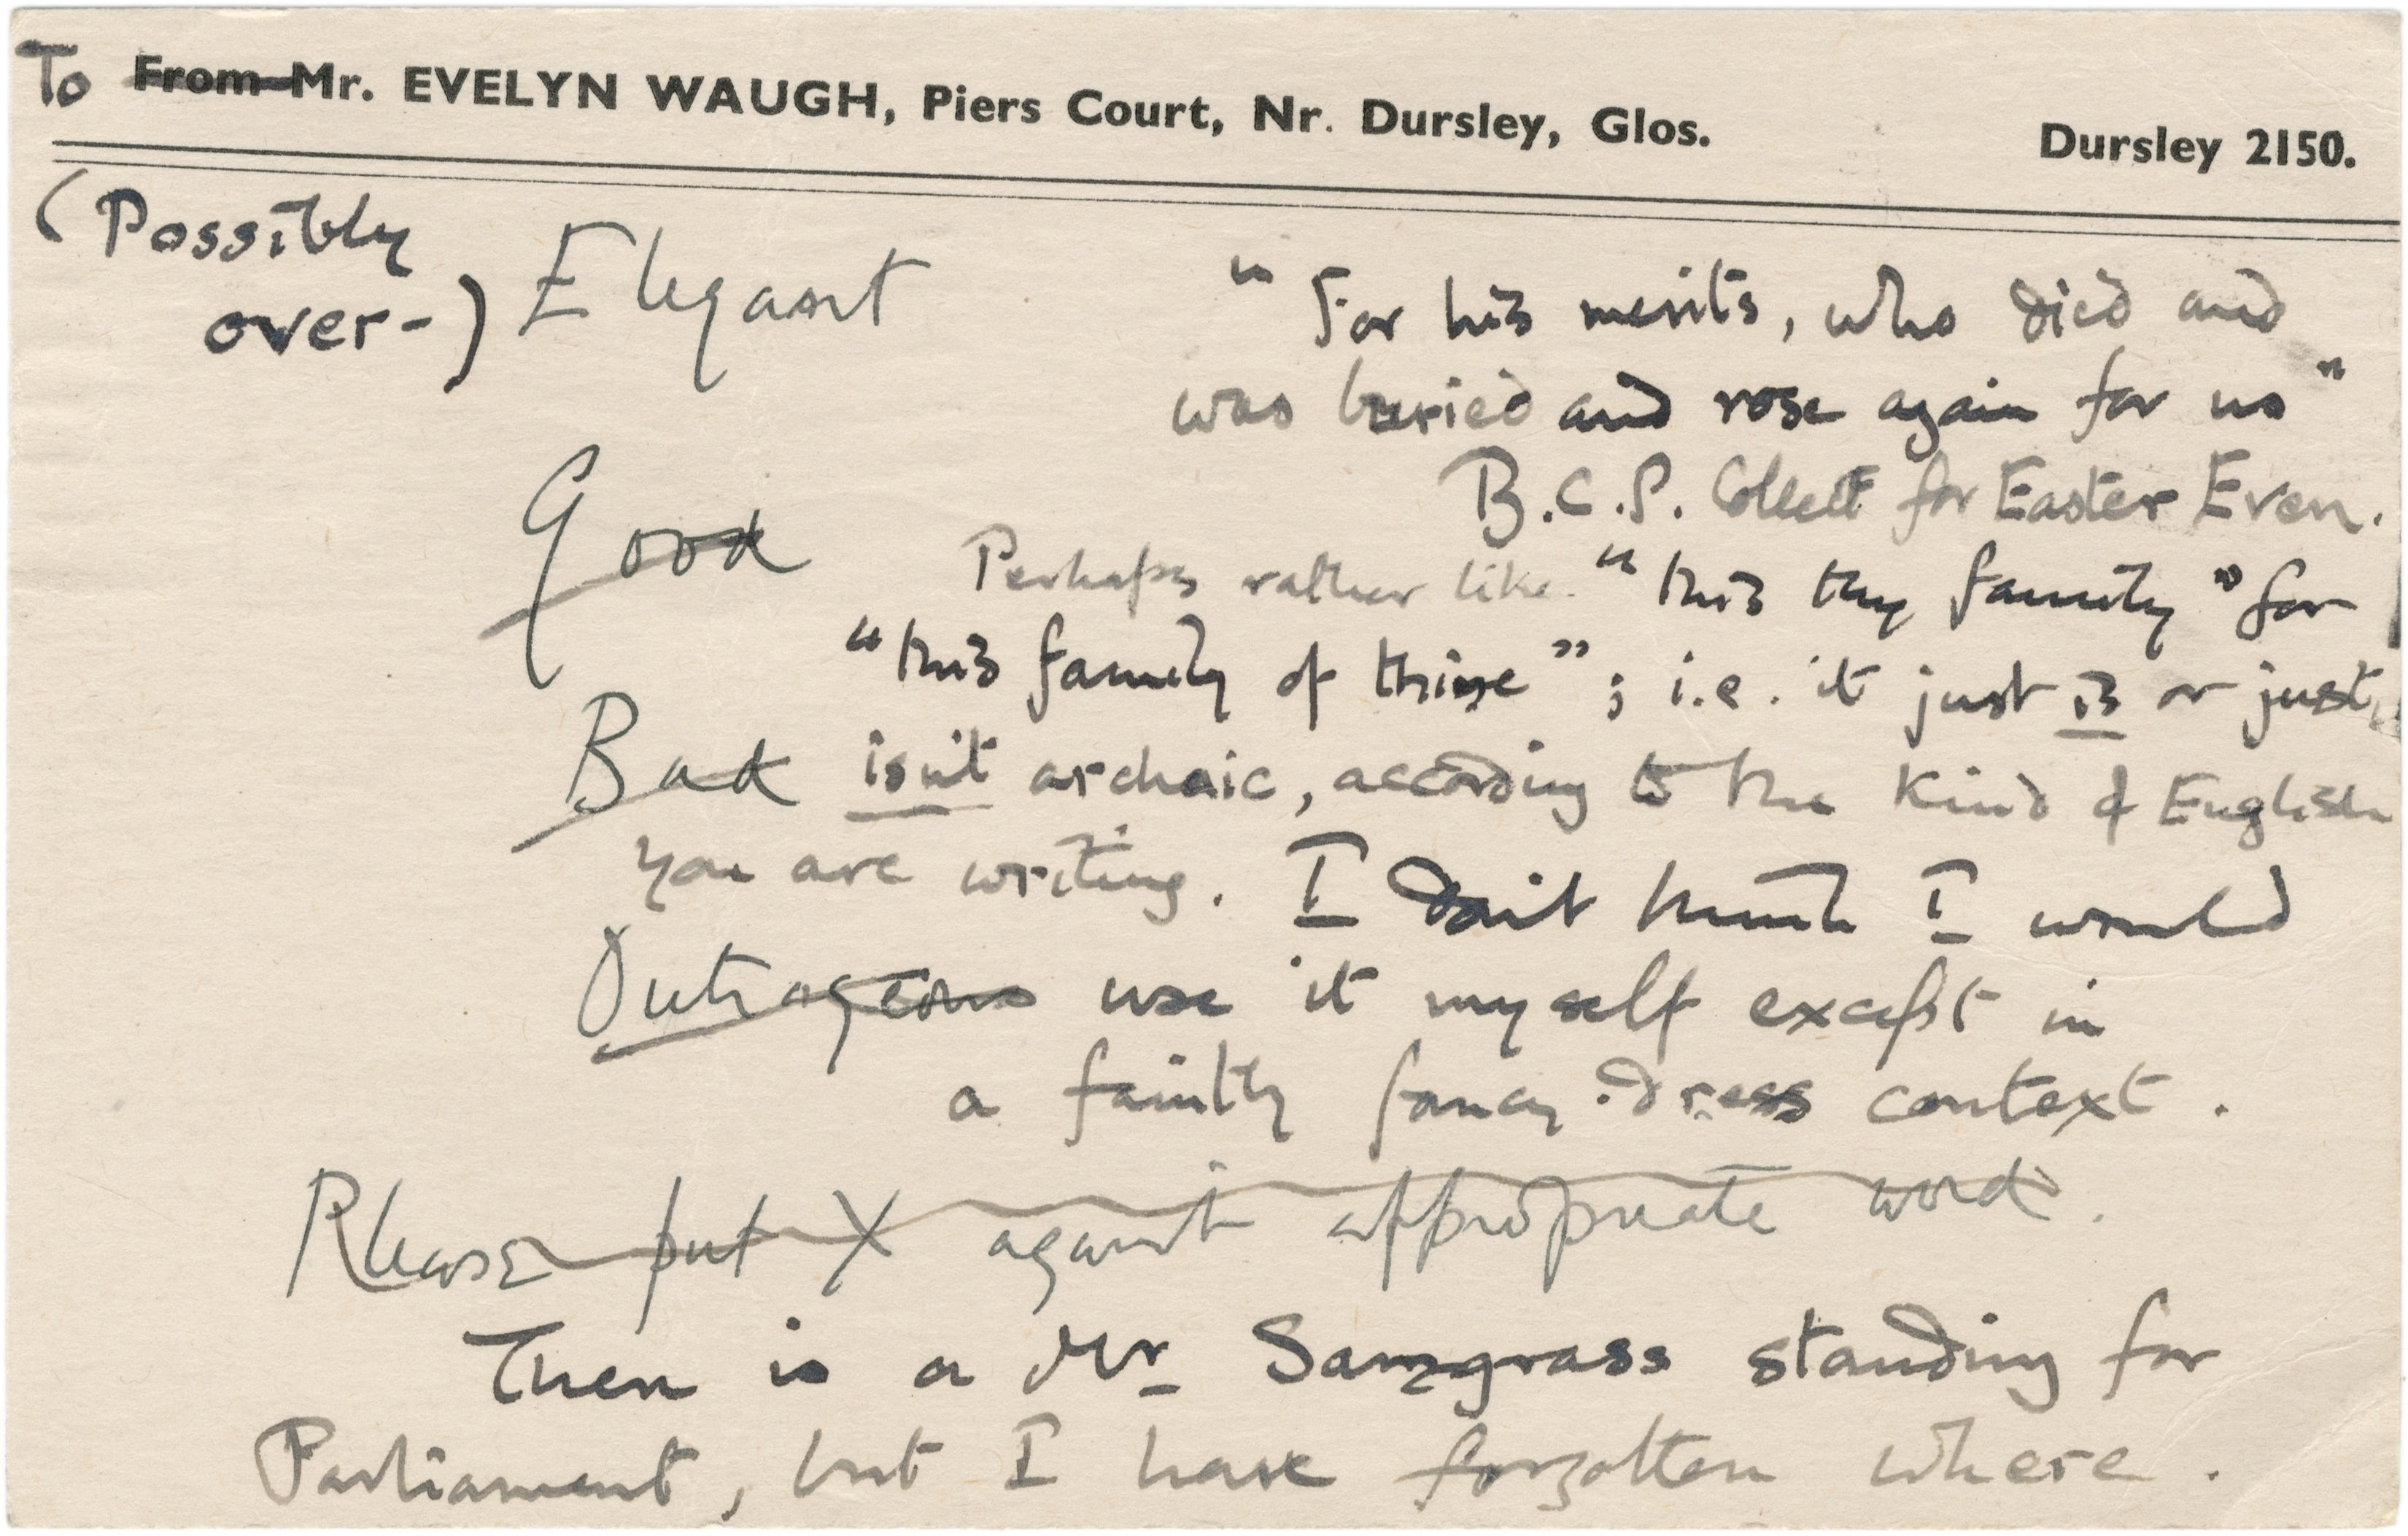 To From Mr. EVELYN WAUGH, Piers Court, Nr. Dursley, Glos. Dursley 2150.
(Possibly
over-) Elegant
"For his merits, who died and
was buried and rose again for us"
B.C.P. Collect for Easter Even.
Good
Perhaps rather like "this thy family" for
"this family of thine"; i.e. it just is or just
Bad isn't archaic, according to the kind of English
you are writing. I don't think I would
Outrageous use it myself except in
a faintly fancy-dress context.
Please put X against appropriate word.
There is a Mr Samgrass standing for
Parliament, but I have forgotten where.